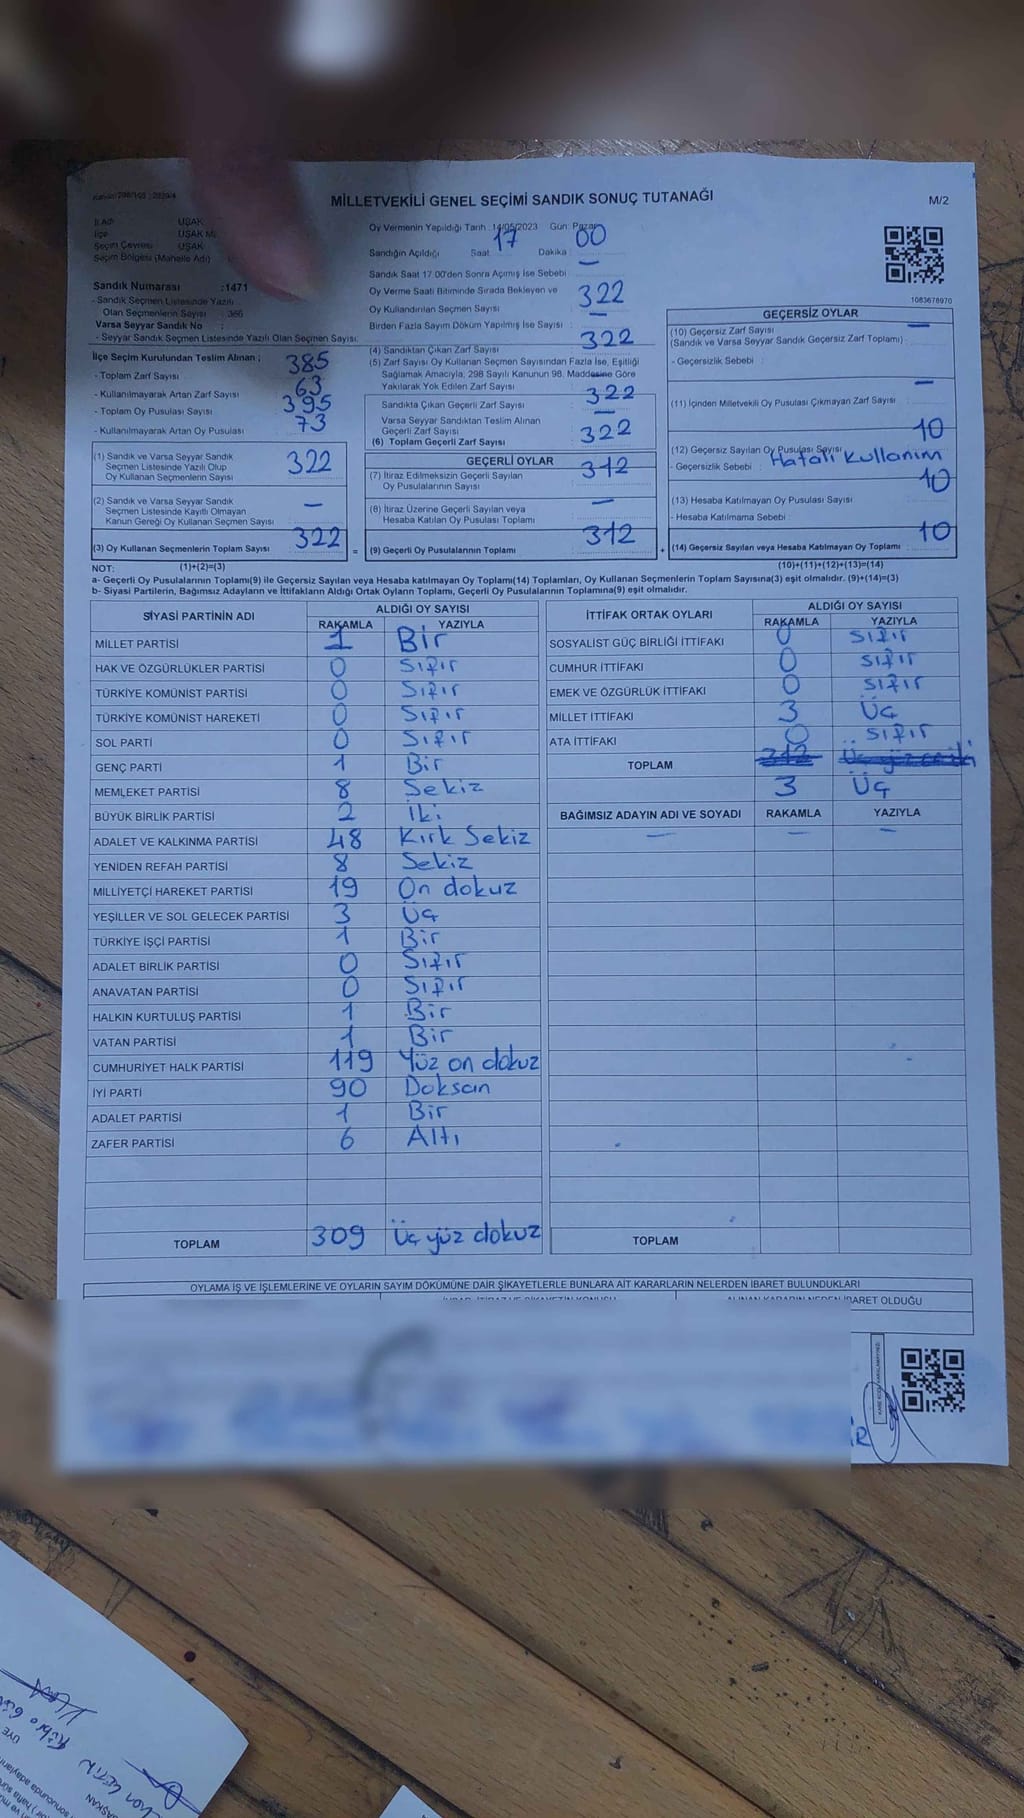 MİLLETVEKİLİ GENEL SEÇİMİ SANDIK SONUÇ TUTANAĞI
M/2
İl Adı : UŞAK
İlçe : UŞAK
Seçim Çevresi : UŞAK
Seçim Bölgesi (Mahalle Adı)
Sandık Numarası : 1471
- Sandık Seçmen Listesinde Yazılı
Olan Seçmenlerin Sayısı : 366
Varsa Seyyar Sandık No :
- Seyyar Sandık Seçmen Listesinde Yazılı Olan Seçmen Sayısı:
Oy Vermenin Yapıldığı Tarih : 14/05/2023 Gün: Pazar
Sandığın Açıldığı Saat 17 Dakika : 00
Sandık Saat 17.00'den Sonra Açımış İse Sebebi : —
Oy Verme Saati Bitiminde Sırada Bekleyen ve
Oy Kullandırılan Seçmen Sayısı : 322
Birden Fazla Sayım Döküm Yapılmış İse Sayısı : —
1083676970
İlçe Seçim Kurulundan Teslim Alınan ;
- Toplam Zarf Sayısı 385
- Kullanılmayarak Artan Zarf Sayısı 63
- Toplam Oy Pusulası Sayısı 395
- Kullanılmayarak Artan Oy Pusulası 73
(1) Sandık ve Varsa Seyyar Sandık
Seçmen Listesinde Yazılı Olup
Oy Kullanan Seçmenlerin Sayısı 322
(2) Sandık ve Varsa Seyyar Sandık
Seçmen Listesinde Kayıtlı Olmayan
Kanun Gereği Oy Kullanan Seçmen Sayısı —
(3) Oy Kullanan Seçmenlerin Toplam Sayısı 322 =
(4) Sandıktan Çıkan Zarf Sayısı 322
(5) Zarf Sayısı Oy Kullanan Seçmen Sayısından Fazla İse, Eşitliği
Sağlamak Amacıyla, 298 Sayılı Kanunun 98. Maddesine Göre
Yakılarak Yok Edilen Zarf Sayısı
Sandıkta Çıkan Geçerli Zarf Sayısı : 322
Varsa Seyyar Sandıktan Teslim Alınan
Geçerli Zarf Sayısı : —
(6) Toplam Geçerli Zarf Sayısı : 322
GEÇERLİ OYLAR
(7) İtiraz Edilmeksizin Geçerli Sayılan
Oy Pusulalarının Sayısı 312
(8) İtiraz Üzerine Geçerli Sayılan veya
Hesaba Katılan Oy Pusulası Toplamı —
(9) Geçerli Oy Pusulalarının Toplamı 312 +
GEÇERSİZ OYLAR
(10) Geçersiz Zarf Sayısı —
(Sandık ve Varsa Seyyar Sandık Geçersiz Zarf Toplamı)
- Geçersizlik Sebebi :
(11) İçinden Milletvekili Oy Pusulası Çıkmayan Zarf Sayısı —
(12) Geçersiz Sayılan Oy Pusulası Sayısı 10
- Geçersizlik Sebebi : Hatalı kullanım
(13) Hesaba Katılmayan Oy Pusulası Sayısı 10
- Hesaba Katılmama Sebebi :
(14) Geçersiz Sayılan veya Hesaba Katılmayan Oy Toplamı 10
NOT: (1)+(2)=(3) (10)+(11)+(12)+(13)=(14)
a- Geçerli Oy Pusulalarının Toplamı(9) ile Geçersiz Sayılan veya Hesaba katılmayan Oy Toplamı(14) Toplamları, Oy Kullanan Seçmenlerin Toplam Sayısına(3) eşit olmalıdır. (9)+(14)=(3)
b- Siyasi Partilerin, Bağımsız Adayların ve İttifakların Aldığı Ortak Oyların Toplamı, Geçerli Oy Pusulalarının Toplamına(9) eşit olmalıdır.
SİYASİ PARTİNİN ADI ALDIĞI OY SAYISI
RAKAMLA YAZIYLA
MİLLET PARTİSİ 1 Bir
HAK VE ÖZGÜRLÜKLER PARTİSİ 0 Sıfır
TÜRKİYE KOMÜNİST PARTİSİ 0 Sıfır
TÜRKİYE KOMÜNİST HAREKETİ 0 Sıfır
SOL PARTİ 0 Sıfır
GENÇ PARTİ 1 Bir
MEMLEKET PARTİSİ 8 Sekiz
BÜYÜK BİRLİK PARTİSİ 2 İki
ADALET VE KALKINMA PARTİSİ 48 Kırk Sekiz
YENİDEN REFAH PARTİSİ 8 Sekiz
MİLLİYETÇİ HAREKET PARTİSİ 19 On dokuz
YEŞİLLER VE SOL GELECEK PARTİSİ 3 Üç
TÜRKİYE İŞÇİ PARTİSİ 1 Bir
ADALET BİRLİK PARTİSİ 0 Sıfır
ANAVATAN PARTİSİ 0 Sıfır
HALKIN KURTULUŞ PARTİSİ 1 Bir
VATAN PARTİSİ 1 Bir
CUMHURİYET HALK PARTİSİ 119 Yüz on dokuz
İYİ PARTİ 90 Doksan
ADALET PARTİSİ 1 Bir
ZAFER PARTİSİ 6 Altı
TOPLAM 309 Üç yüz dokuz
İTTİFAK ORTAK OYLARI ALDIĞI OY SAYISI
RAKAMLA YAZIYLA
SOSYALİST GÜÇ BİRLİĞİ İTTİFAKI 0 Sıfır
CUMHUR İTTİFAKI 0 Sıfır
EMEK VE ÖZGÜRLÜK İTTİFAKI 0 Sıfır
MİLLET İTTİFAKI 3 Üç
ATA İTTİFAKI 0 Sıfır
TOPLAM 312 Üç yüz on iki
3 Üç
BAĞIMSIZ ADAYIN ADI VE SOYADI RAKAMLA YAZIYLA
— — —
TOPLAM
OYLAMA İŞ VE İŞLEMLERİNE VE OYLARIN SAYIM DÖKÜMÜNE DAİR ŞİKAYETLERLE BUNLARA AİT KARARLARIN NELERDEN İBARET BULUNDUKLARI
ALINAN KARARIN NEDEN İBARET OLDUĞU
ÜYE
BAŞKAN